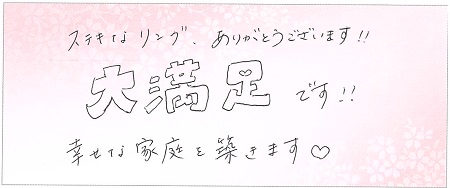 ステキなリング、ありがとうございます!!
大満足です!!
幸せな家庭を築きます♡